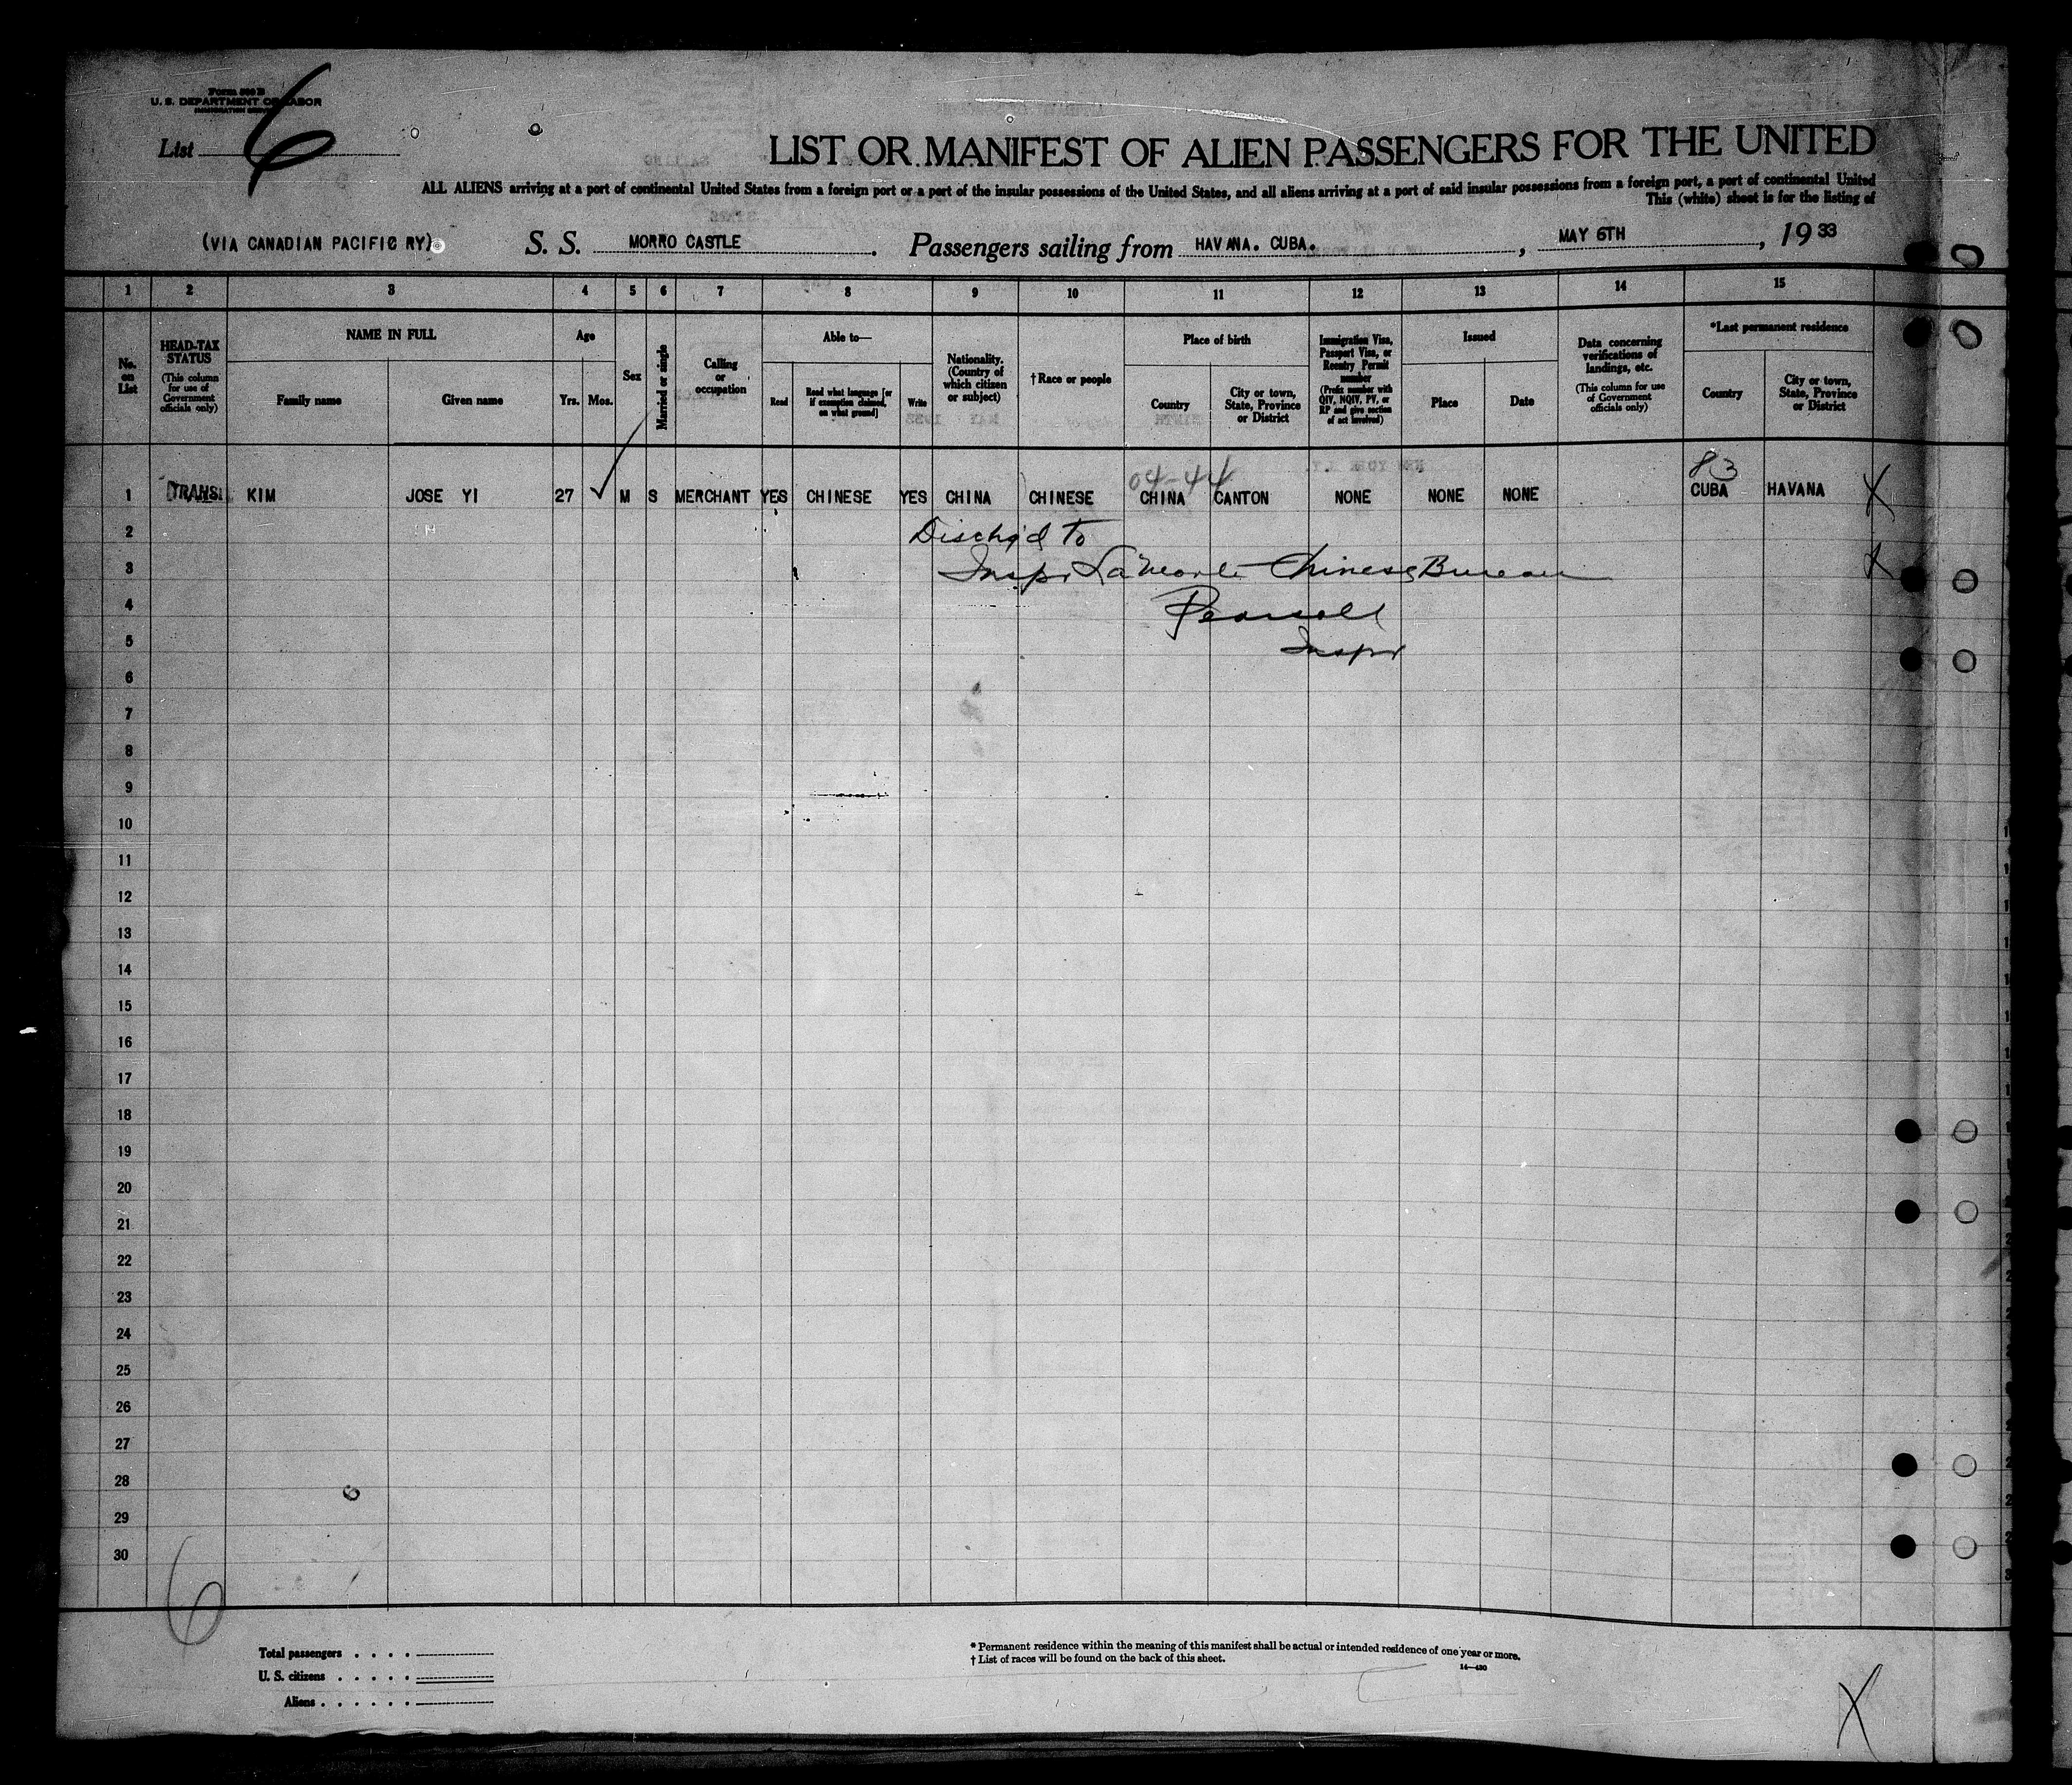 Form 500 B
U. S. DEPARTMENT OF LABOR
List 6
LIST OR MANIFEST OF ALIEN PASSENGERS FOR THE UNITED
ALL ALIENS arriving at a port of continental United States from a foreign port or a port of the insular possessions of the United States, and all aliens arriving at a port of said insular possessions from a foreign port, a port of continental United
This (white) sheet is for the listing of
(VIA CANADIAN PACIFIC RY) S. S. MORRO CASTLE. Passengers sailing from HAVANA. CUBA., MAY 6TH, 1933
1 2 3 4 5 6 7 8 9 10 11 12 13 14 15
No. on List
HEAD-TAX STATUS
(This column for use of Government officials only)
NAME IN FULL
Family name
Given name
Age
Yrs. Mos.
Sex
Married or single
Calling or occupation
Able to—
Read
Read what language [or if exemption claimed, on what ground]
Write
Nationality. (Country of which citizen or subject)
†Race or people
Place of birth
Country
City or town, State, Province or District
Immigration Visa, Passport Visa, or Reentry Permit number
(Prefix number with QIV, NQIV, PV, or RP and give section of act involved)
Issued
Place
Date
Data concerning verifications of landings, etc.
(This column for use of Government officials only)
*Last permanent residence
Country
City or town, State, Province or District
04-44 83
1 TRANS. KIM JOSE YI 27 M S MERCHANT YES CHINESE YES CHINA CHINESE CHINA CANTON NONE NONE NONE CUBA HAVANA X
2 Dischg'd to
3 Inspr Chinese Bureau X
4
5 Inspr
6
7
8
9
10
11
12
13
14
15
16
17
18
19
20
21
22
23
24
25
26
27
28
29
30
6
6
Total passengers . . . .
U. S. citizens . . . . .
Aliens . . . . . .
* Permanent residence within the meaning of this manifest shall be actual or intended residence of one year or more.
† List of races will be found on the back of this sheet.
14—430
X